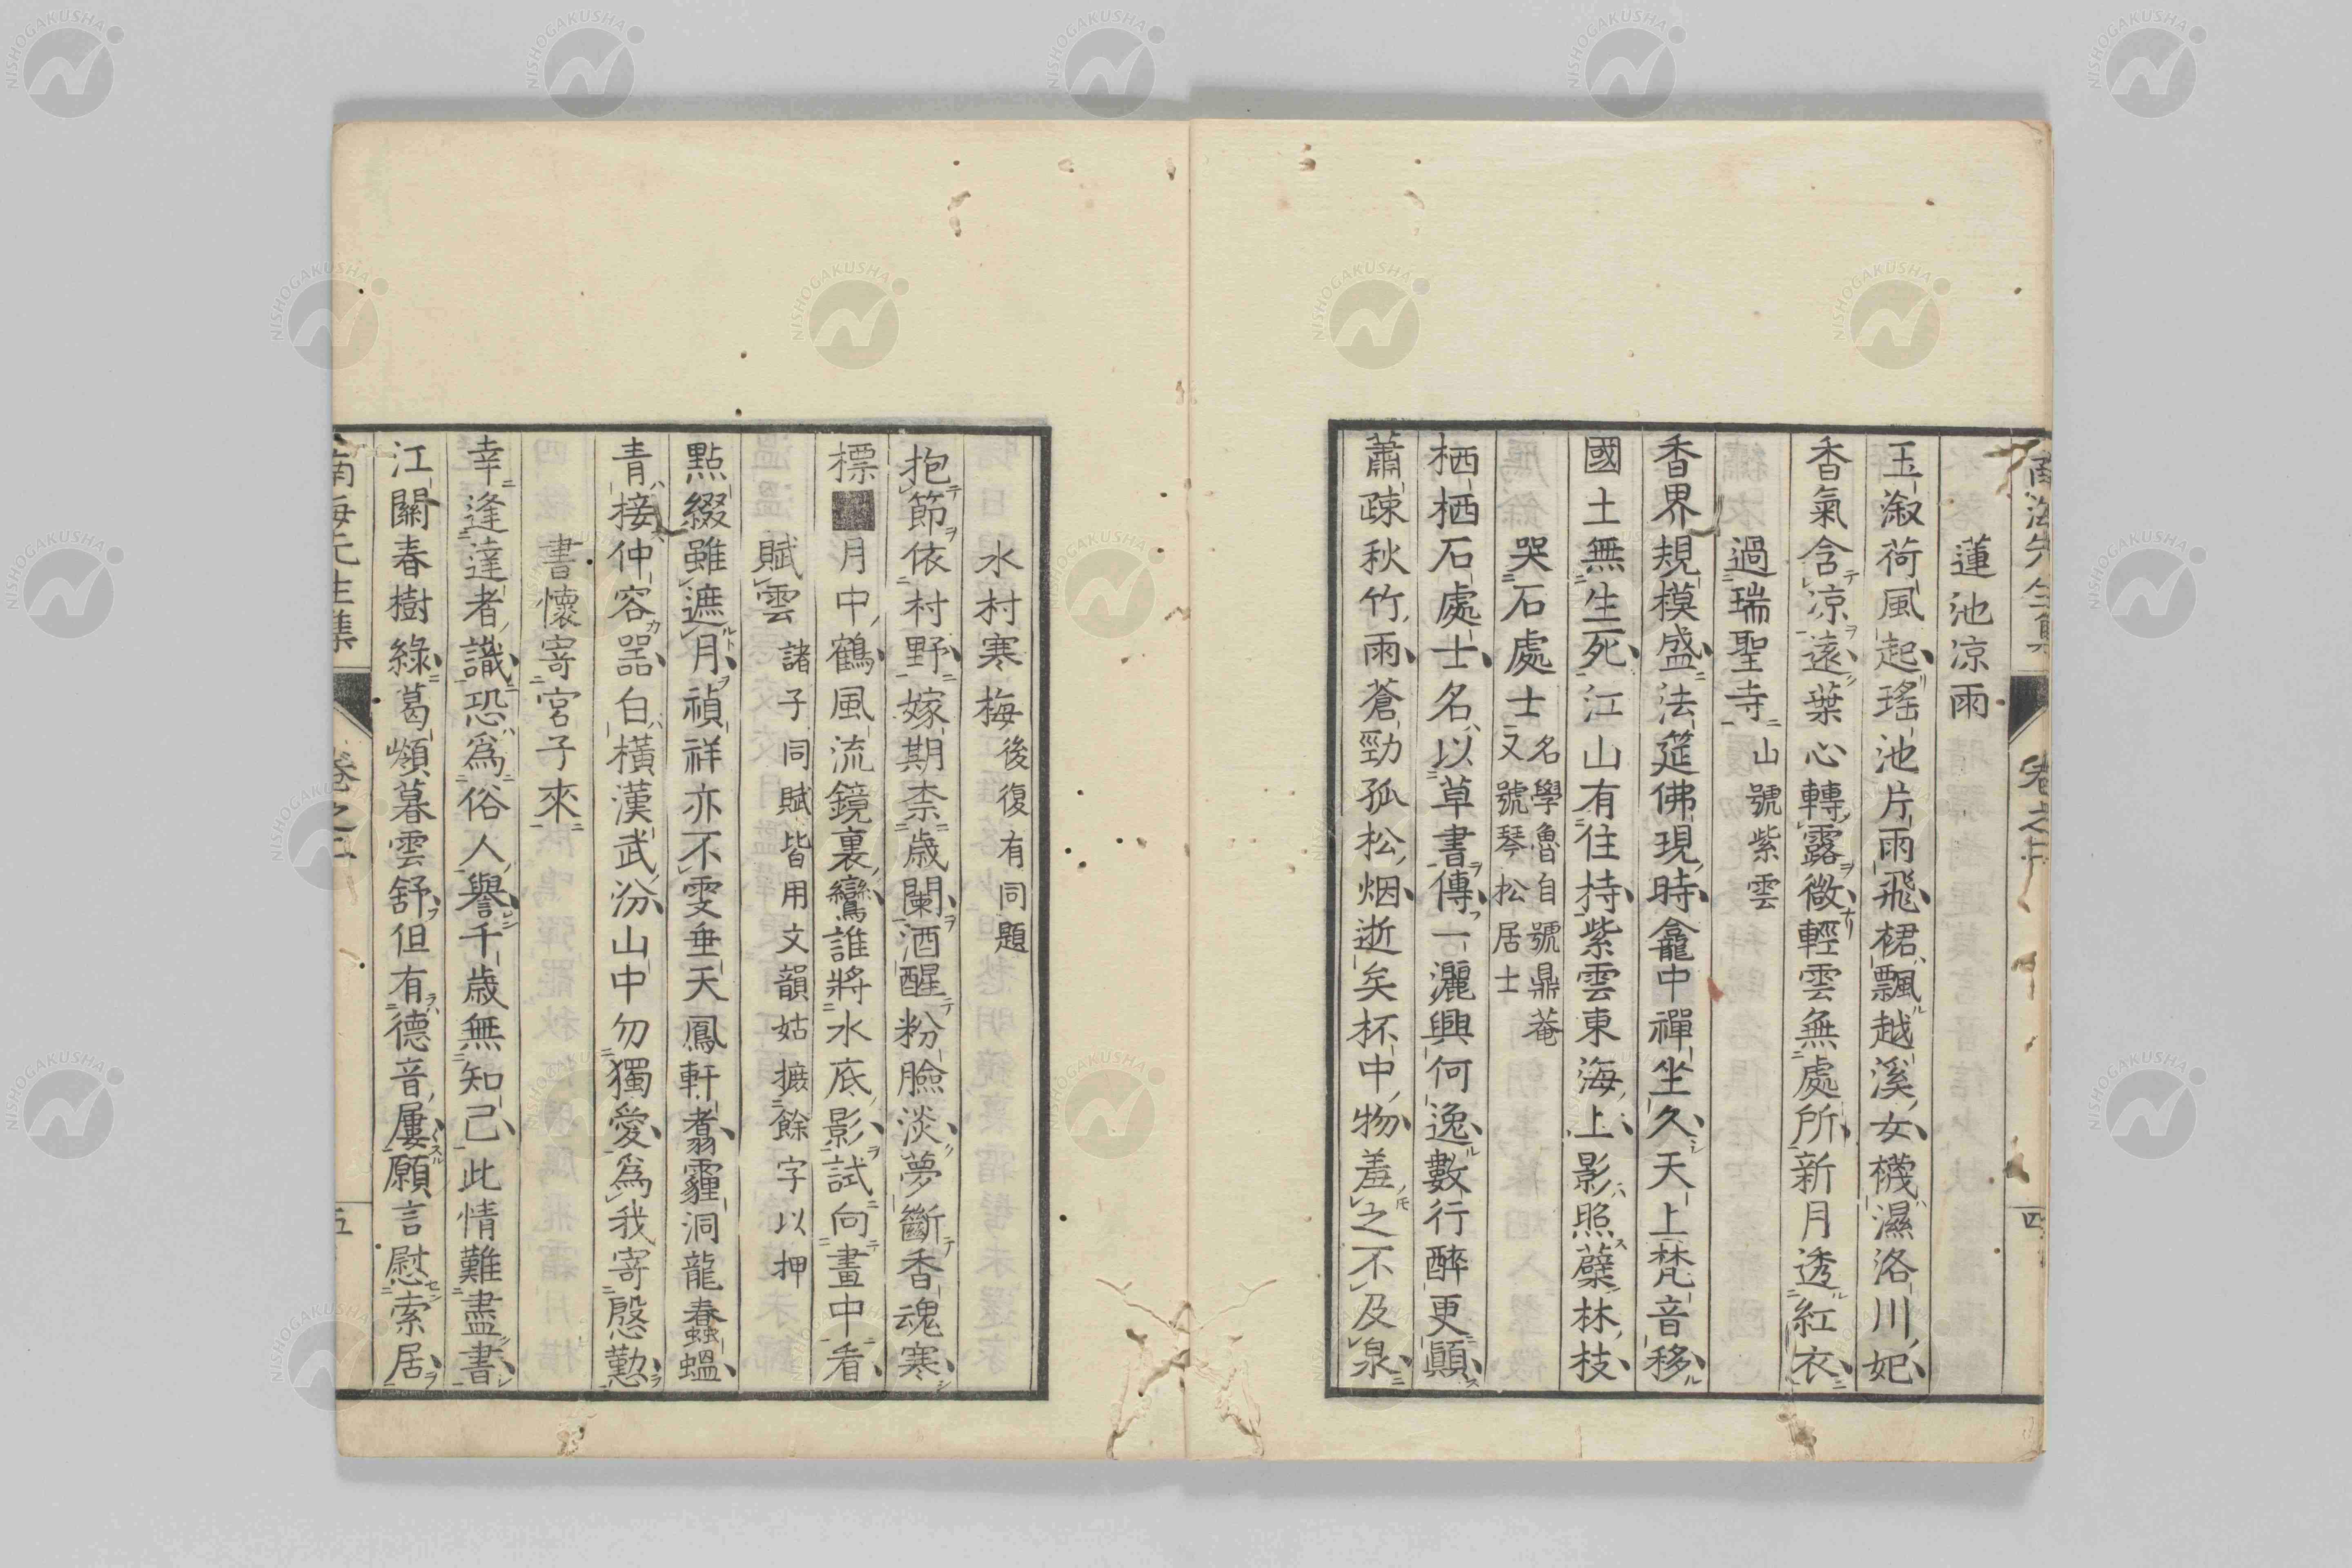 蓮池凉雨
玉溆荷風起瑤池片雨飛裙飄越溪女襪濕洛川妃
香氣含凉遠葉心轉露微輕雲無處所新月透紅衣
過瑞聖寺 山號紫雲
香界規模盛法筵佛現時龕中禪坐久天上梵音移
國土無生死江山有住持紫雲東海上影照蘗林枝
哭石處士 名學魯自號鼎菴
又號琴松居士
栖栖石處士名以草書傳一灑興何逸數行醉更顛
蕭疎秋竹雨蒼勁孤松烟逝矣杯中物羞之不及泉
四
水村寒梅 後復有同題
抱節依村野嫁期柰歳闌酒醒粉臉淡夢斷香魂寒
標■月中鶴風流鏡裏鸞誰將水底影試向畫中看
賦雲 諸子同賦皆用文韻姑摭餘字以押
點綴雖遮月禎祥亦不雯垂天鳳軒翥霾洞龍蠢蝹
青接仲容器白橫漢武汾山中勿獨愛爲我寄慇懃
書懷寄宮子來
幸逢達者識恐爲俗人譽千歳無知己此情難盡書
江關春樹綠葛㟲暮雲舒但有德音屢願言慰索居
五
NISHOGAKUSHA